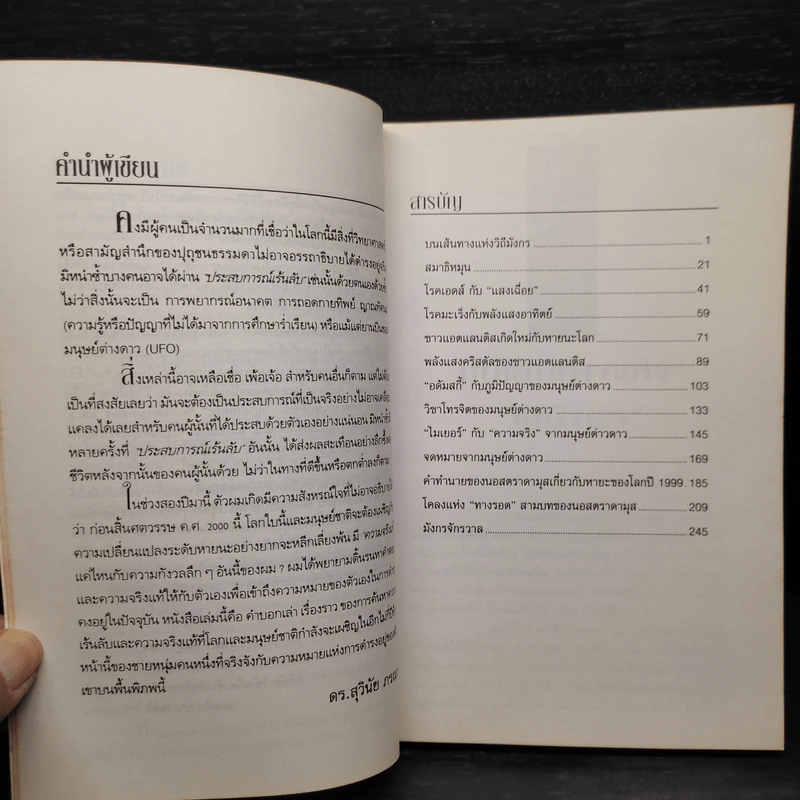 คำนำผู้เขียน
คงมีผู้คนเป็นจำนวนมากที่เชื่อว่าในโลกนี้มีสิ่งที่วิทยาศาสตร์
หรือสามัญสำนึกของปุถุชนธรรมดาไม่อาจอรรถาธิบายได้ดำรงอยู่จริง
มิหนำซ้ำบางคนอาจได้ผ่าน "ประสบการณ์เร้นลับ" เช่นนั้นด้วยตนเองด้วยซ้ำ
ไม่ว่าสิ่งนั้นจะเป็น การพยากรณ์อนาคต การถอดกายทิพย์
(ความรู้หรือปัญญาที่ไม่ได้มาจากการศึกษาร่ำเรียน) หรือแม้แต่ยานบินของ
มนุษย์ต่างดาว (UFO)
สิ่งเหล่านี้อาจเหลือเชื่อ เพ้อเจ้อ สำหรับคนอื่นก็ตาม แต่ไม่ต้อง
เป็นที่สงสัยเลยว่า มันจะต้องเป็นประสบการณ์ที่เป็นจริงอย่างไม่อาจเคลือบ
แคลงได้เลยสำหรับคนผู้นั้นที่ได้ประสบด้วยตัวเองอย่างแน่นอน มิหนำซ้ำ
หลายครั้งที่ "ประสบการณ์เร้นลับ" อันนั้น ได้ส่งผลสะเทือนอย่างลึกซึ้งต่อ
ชีวิตหลังจากนั้นของคนผู้นั้นด้วย ไม่ว่าในทางที่ดีขึ้นหรือตกต่ำลงก็ตาม
ในช่วงสองปีมานี้ ตัวผมเกิดมีความสังหรณ์ใจที่ไม่อาจอธิบายได้
ว่า ก่อนสิ้นศตวรรษ ค.ศ. 2000 นี้ โลกใบนี้และมนุษย์ชาติจะต้องเผชิญกับ
ความเปลี่ยนแปลงระดับหายนะอย่างยากจะหลีกเลี่ยงพ้น มี "ความจริง"
แค่ไหนกับความกังวลลึก ๆ อันนี้ของผม ? ผมได้พยายามดิ้นรนหาคำตอบ
และความจริงแท้ให้กับตัวเองเพื่อเข้าถึงความหมายของตัวเองในการดำรง
คงอยู่ในปัจจุบัน หนังสือเล่มนี้คือ คำบอกเล่า เรื่องราว ของการค้นหาความ
เร้นลับและความจริงแท้ที่โลกและมนุษย์ชาติกำลังจะเผชิญในอีกไม่กี่ปีข้าง
หน้านี้ของชายหนุ่มคนหนึ่งที่จริงจังกับความหมายแห่งการดำรงอยู่ของ
เขาบนพื้นพิภพนี้
ดร.สุวินัย
สารบัญ
บนเส้นทางแห่งวิถีมังกร 1
สมาธิหมุน 21
โรคเอดส์ กับ "แสงเฉื่อย" 41
โรคมะเร็งกับพลังแสงอาทิตย์ 59
ชาวแอตแลนติสเกิดใหม่กับหายนะโลก 71
พลังแสงคริสตัลของชาวแอตแลนติส 89
"อดัมสกี้" กับภูมิปัญญาของมนุษย์ต่างดาว 103
วิชาโทรจิตของมนุษย์ต่างดาว 133
"ไมเยอร์" กับ "ความจริง" จากมนุษย์ต่าวดาว 145
จดหมายจากมนุษย์ต่างดาว 169
คำทำนายของนอสตราดามุสเกี่ยวกับหายะของโลกปี 1999 . 185
โคลงแห่ง "ทางรอด" สามบทของนอสตราดามุส 209
มังกรจักรวาล 245